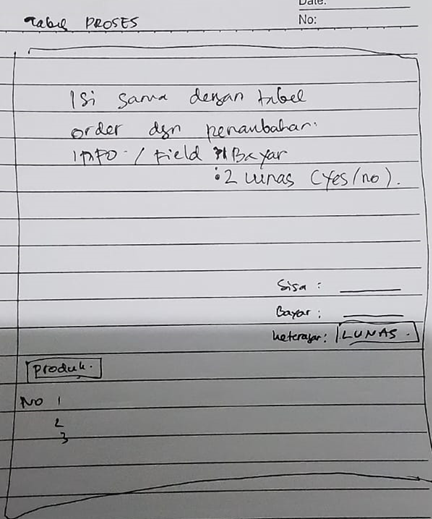 Date:
No:
Tabel PROSES
Isi sama dengan tabel
order dgn penambahan.
INFO / Field : 1 Bayar
: 2 Lunas (Yes/no).
Sisa :
Bayar :
keterangan: LUNAS.
Produk.
No 1
2
3